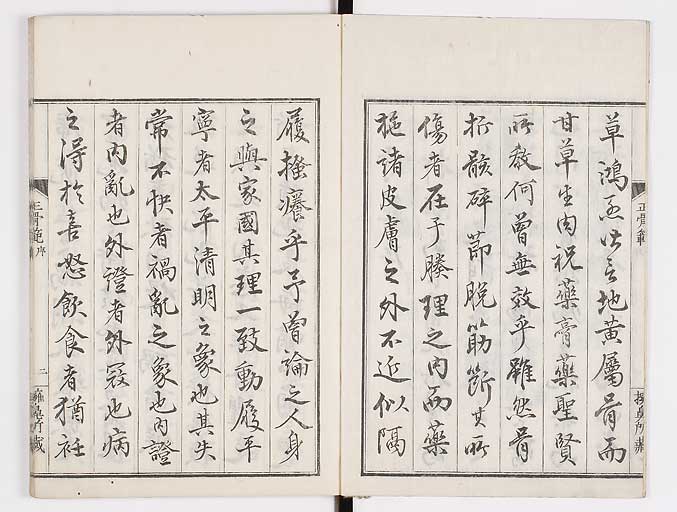 草鴻烈言地黄屬骨而
甘草生肉祝藥膏藥聖賢
所教何曾無效乎雖然骨
折骸碎節脱筋斷其所
傷者在于腠理之内而藥
施諸皮膚之外不近似隔
正骨範
履搔癢乎予曾論之人身
之與家國其理一致動履平
寧者太平清明之象也其失
常不快者禍亂之象也内證
者内亂也外證者外寇也病
之得於喜怒飲食者猶衽
正骨範序
二